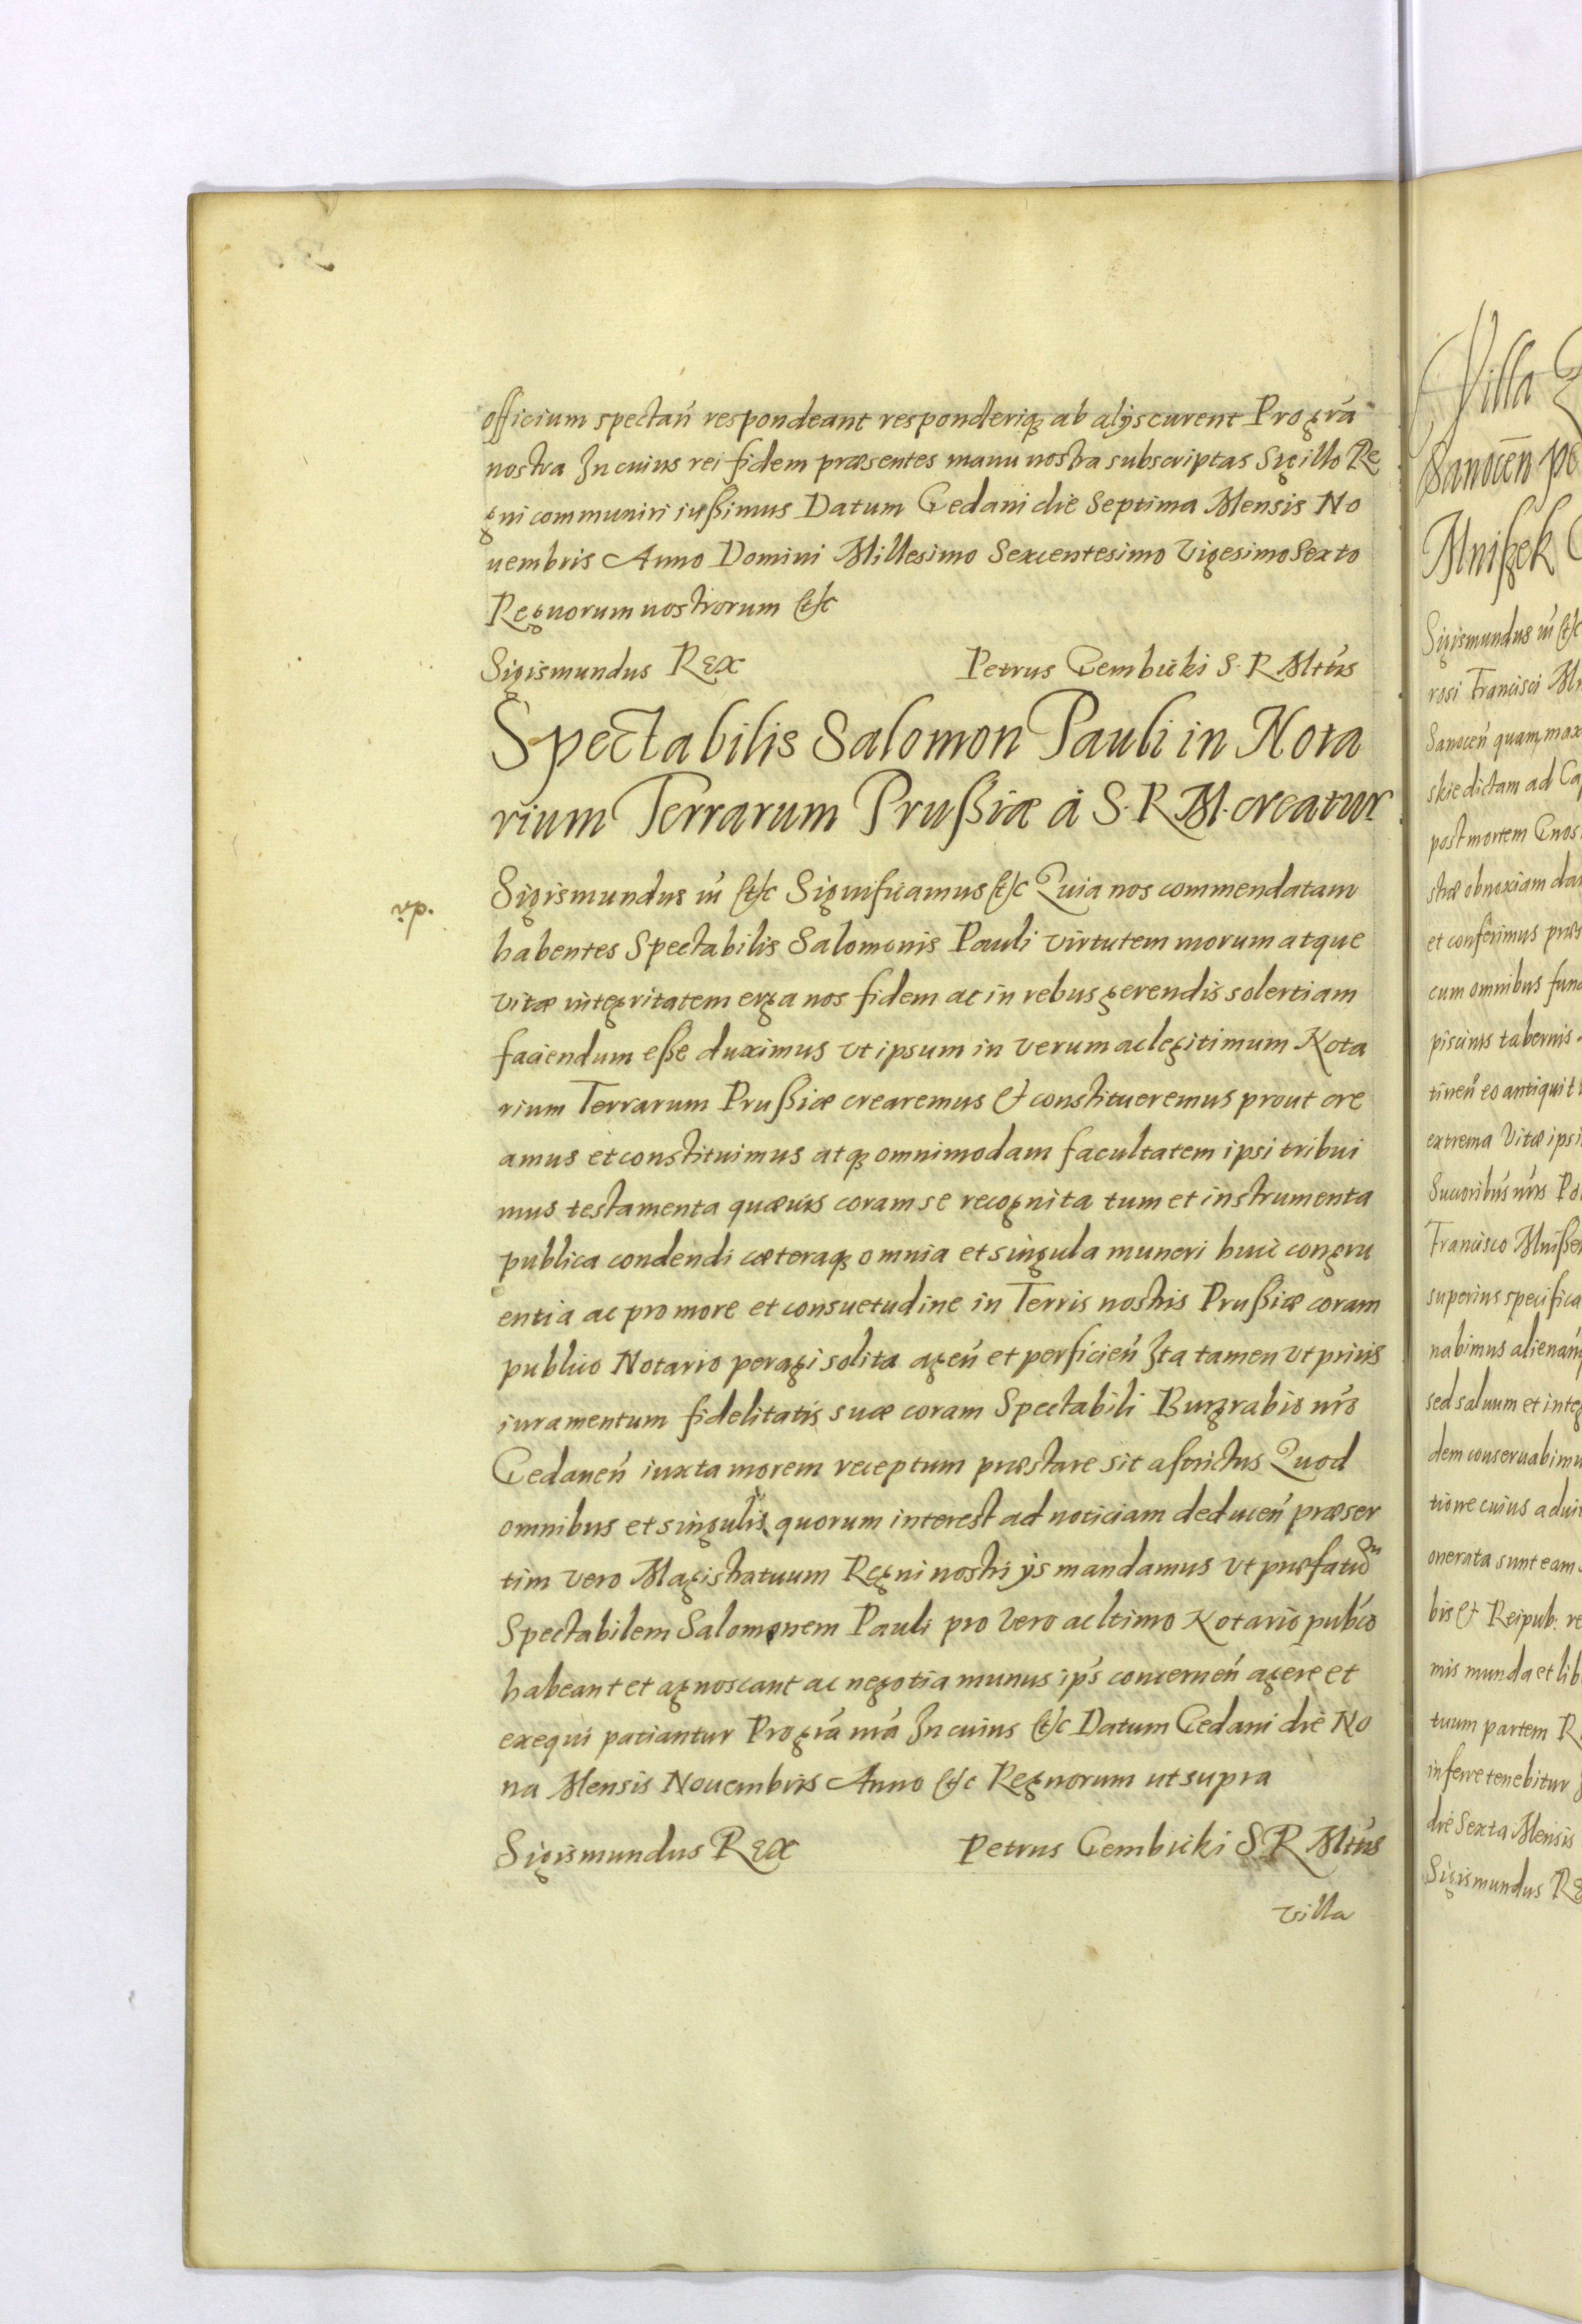 officium spectań respondeant responderiq; ab alijs curent Pro gr̃a
nostra In cuius rei fidem præsentes manu nostra subscriptas Sigillo Re
gni communiri iußimus Datum Gedani die Septima Mensis No
uembris Anno Domini Millesimo Sexcentesimo Vigesimo Sexto
Regnorum nostrorum etc
Sigismundus Rex Petrus Gembicki S. R. Mttis
Spectabilis Salomon Pauli in Nota
rium Terrarum Prußiæ á S. R. M. creatur
Sigismundus III etc Significamus etc Quia nos commendatam
habentes Spectabilis Salomonis Pauli virtutem morum atque
vitæ integritatem erga nos fidem ac in rebus gerendis solertiam
faciendum eße duximus vt ipsum in verum ac legitimum Nota
rium Terrarum Prußiæ crearemus et constitueremus prout cre
amus et constituimus atq; omnimodam facultatem ipsi tribui
mus testamenta quæuis coram se recognita tum et instrumenta
publica condendi cæteraq; omnia et singula muneri huic congru
entia ac pro more et consuetudine in Terris nostris Prußiæ coram
publico Notario peragi solita ageń et perficień Ita tamen vt priùs
iuramentum fidelitatis suæ coram Spectabili Burgrabio nr̃o
Gedaneń iuxta morem receptum præstare sit astrictus Quod
omnibus et singulis quorum interest ad noticiam deduceń præser
tim vero Magistratuum Regni nostri ijs mandamus vt præfatum
Spectabilem Salomonem Pauli pro vero ac ltimo Notario pubco
habeant et agnoscant ac negotia munus ips concerneń agere et
exequi patiantur Pro gr̃a nr̃a In cuius etc Datum Gedani die No
na Mensis Nouembris Anno etc Regnorum ut supra
Sigismundus Rex Petrus Gembicki S. R. Mttis
villa
Villa
Sanoceń po
Mnißek
Sigismundus III etc
rosi Francisci M
Sanoceń quam max
skie dictam ad Ca
post mortem Gnos
stræ obnoxiam da
et conferimus præs
cum omnibus fun
piscinis tabernis
tineń eo antiquit
extrema vitæ ipsi
Succoribus nr̃is Po
Francisco Mniße
superius specifica
nabimus alienań
sed saluum et integ
dem conseruabimu
tione cuius adui
onerata sunt eam
bis et Reipub: re
mis munda et lib
tuum partem R
inferre tenebitur
die Sexta Mensis
Sigismundus Re